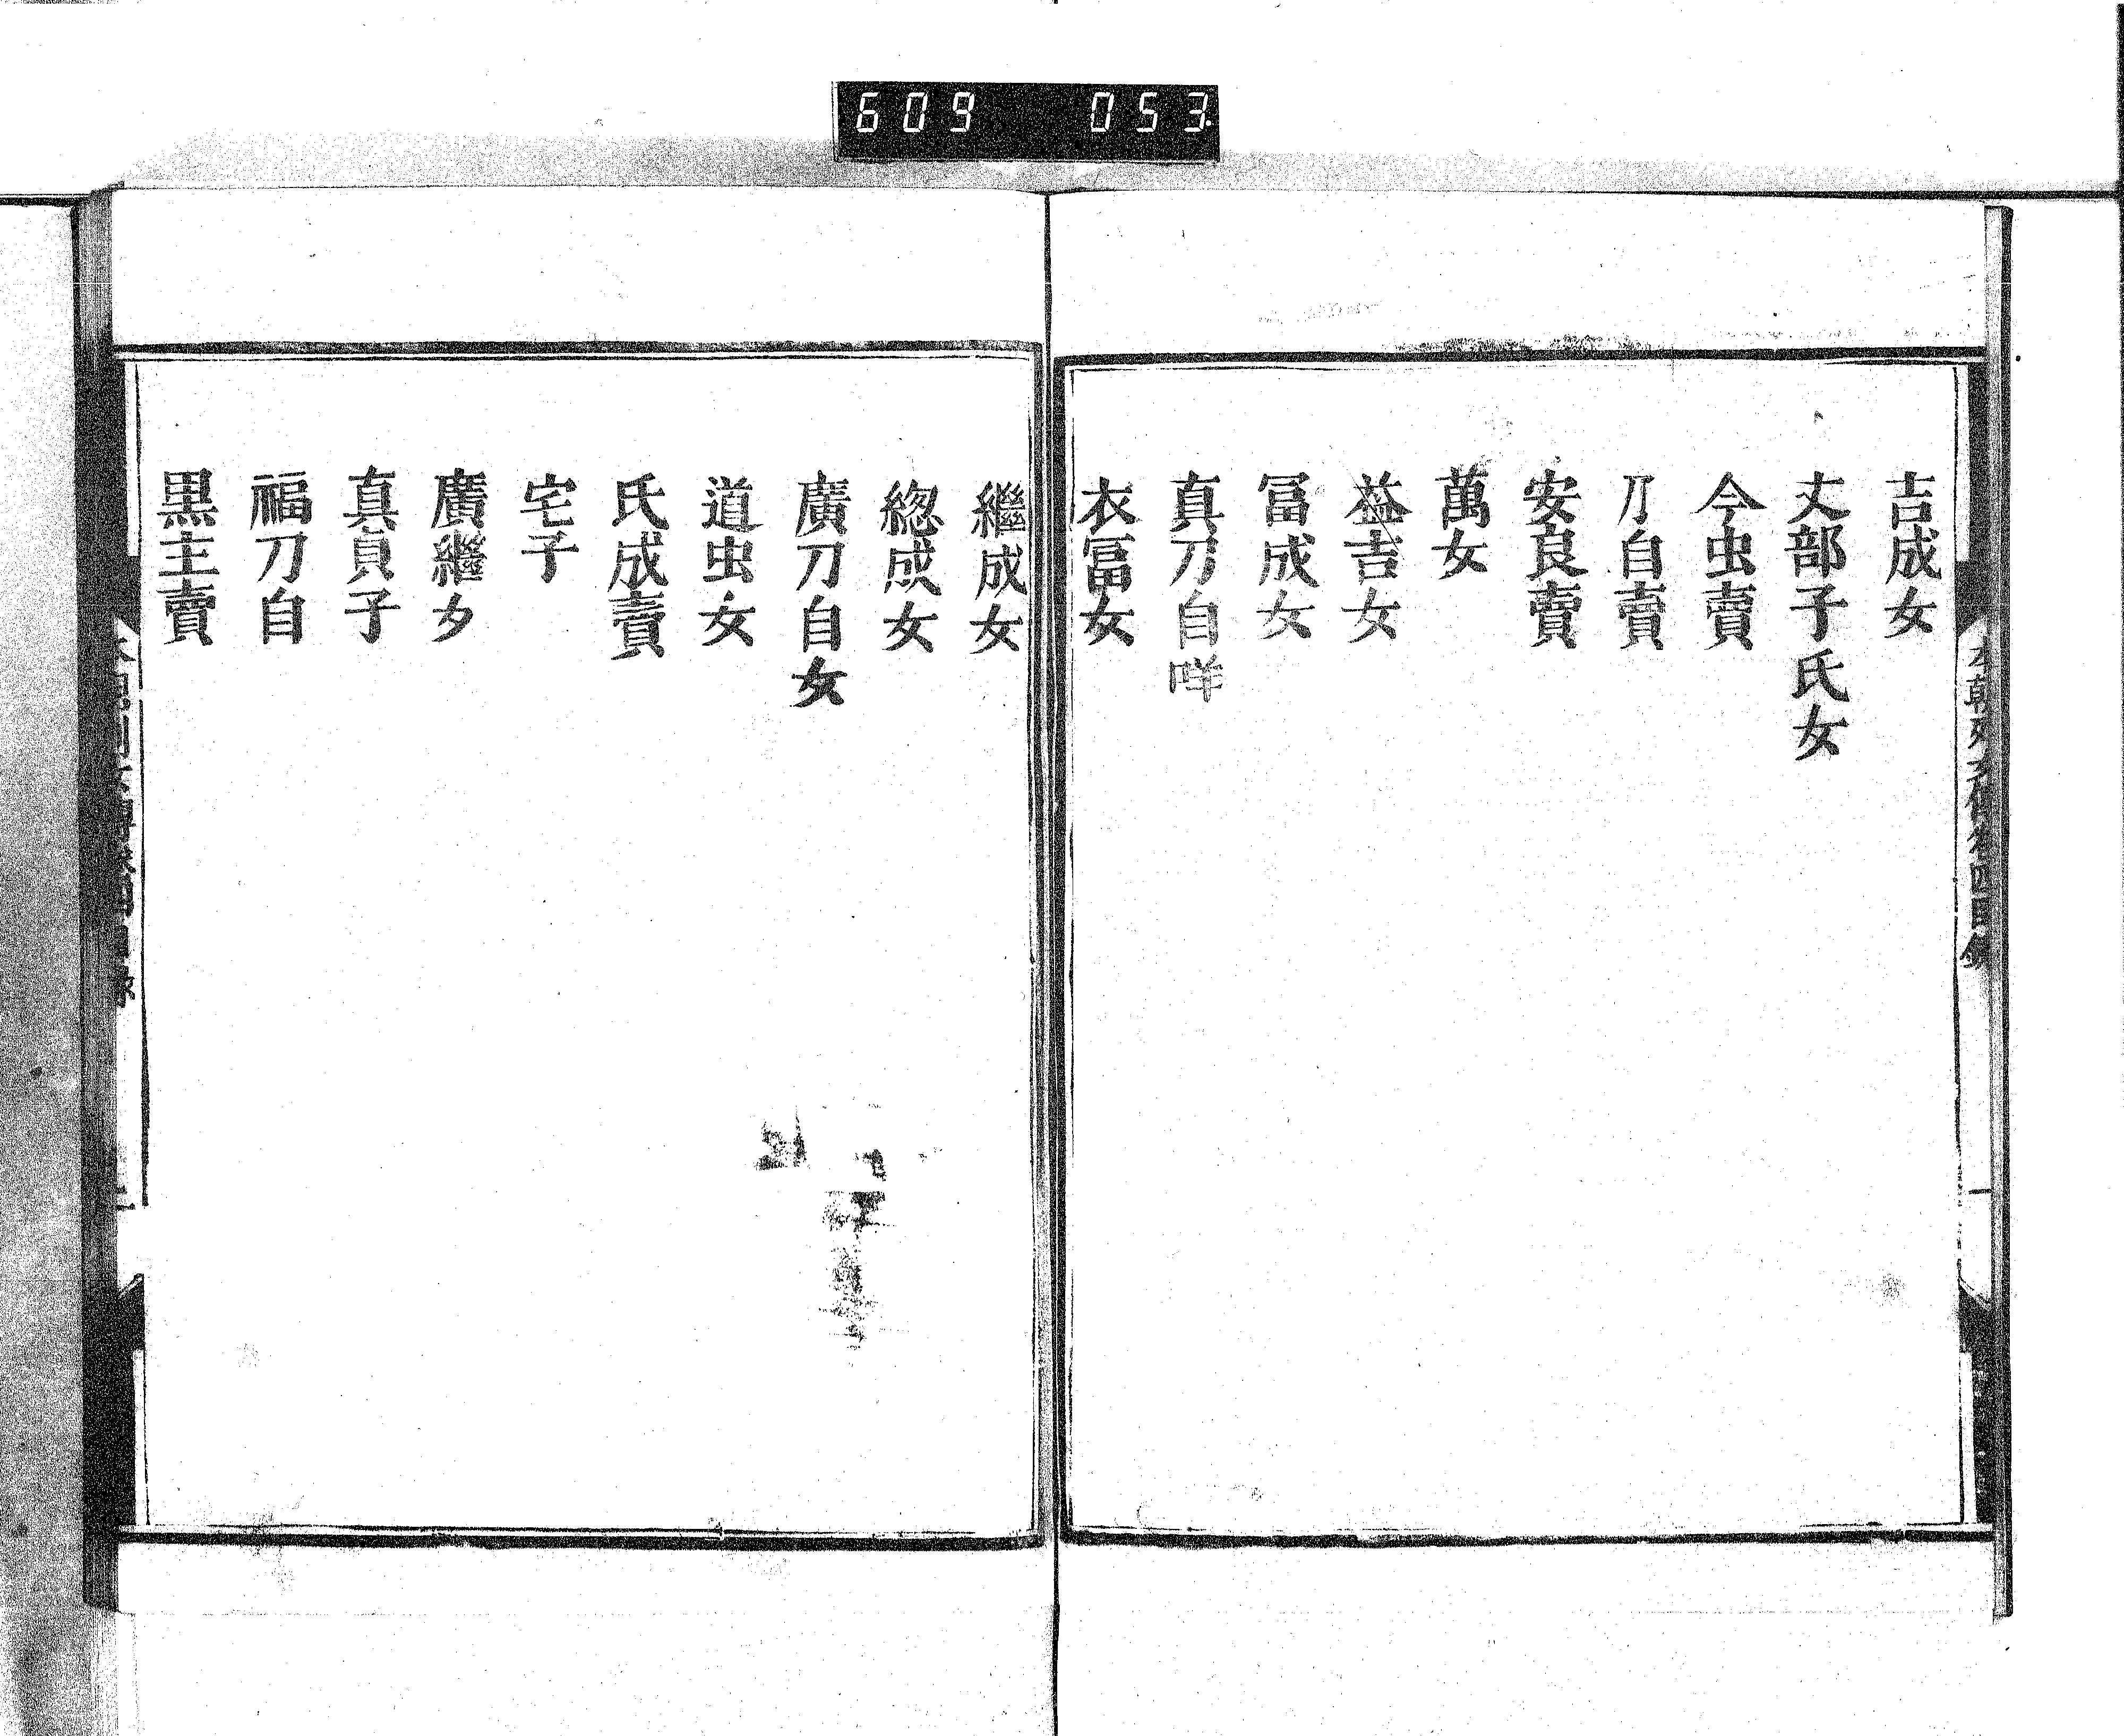 609 053
吉成女
丈部子氏女
今虫賣
刀自賣
安良賣
萬女
益吉女
冨成女
真刀自咩
衣冨女
繼成女
緫成女
廣刀自女
道虫女
氏成賣
宅子
廣繼女
真貞子
福刀自
黒主賣